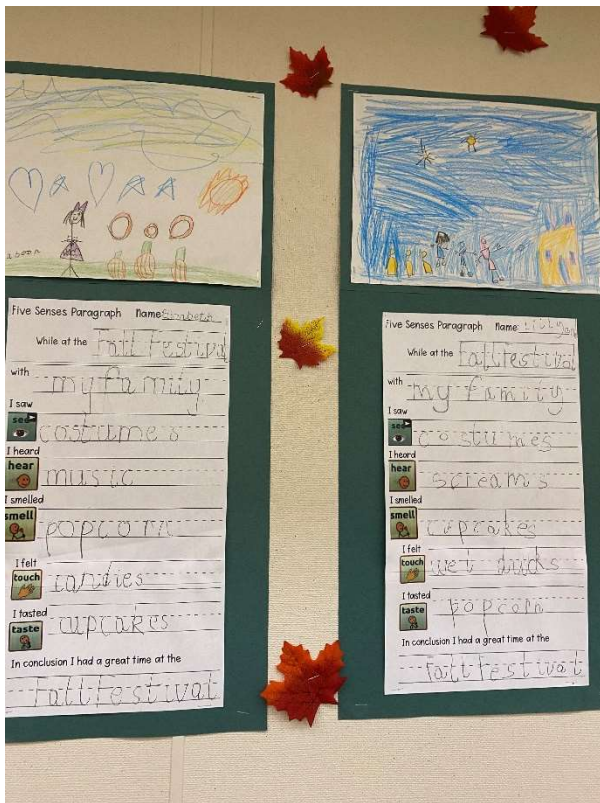 Five Senses Paragraph Name
While at the Fall Festival
with my family
I saw
see costumes
I heard
hear music
I smelled
smell popcorn
I felt
touch candies
I tasted
taste cupcakes
In conclusion I had a great time at the
Fall Festival
Five Senses Paragraph Name
While at the Fall Festival
with my family
I saw
see costumes
I heard
hear screams
I smelled
smell cupcakes
I felt
touch wet ducks
I tasted
taste popcorn
In conclusion I had a great time at the
Fall Festival